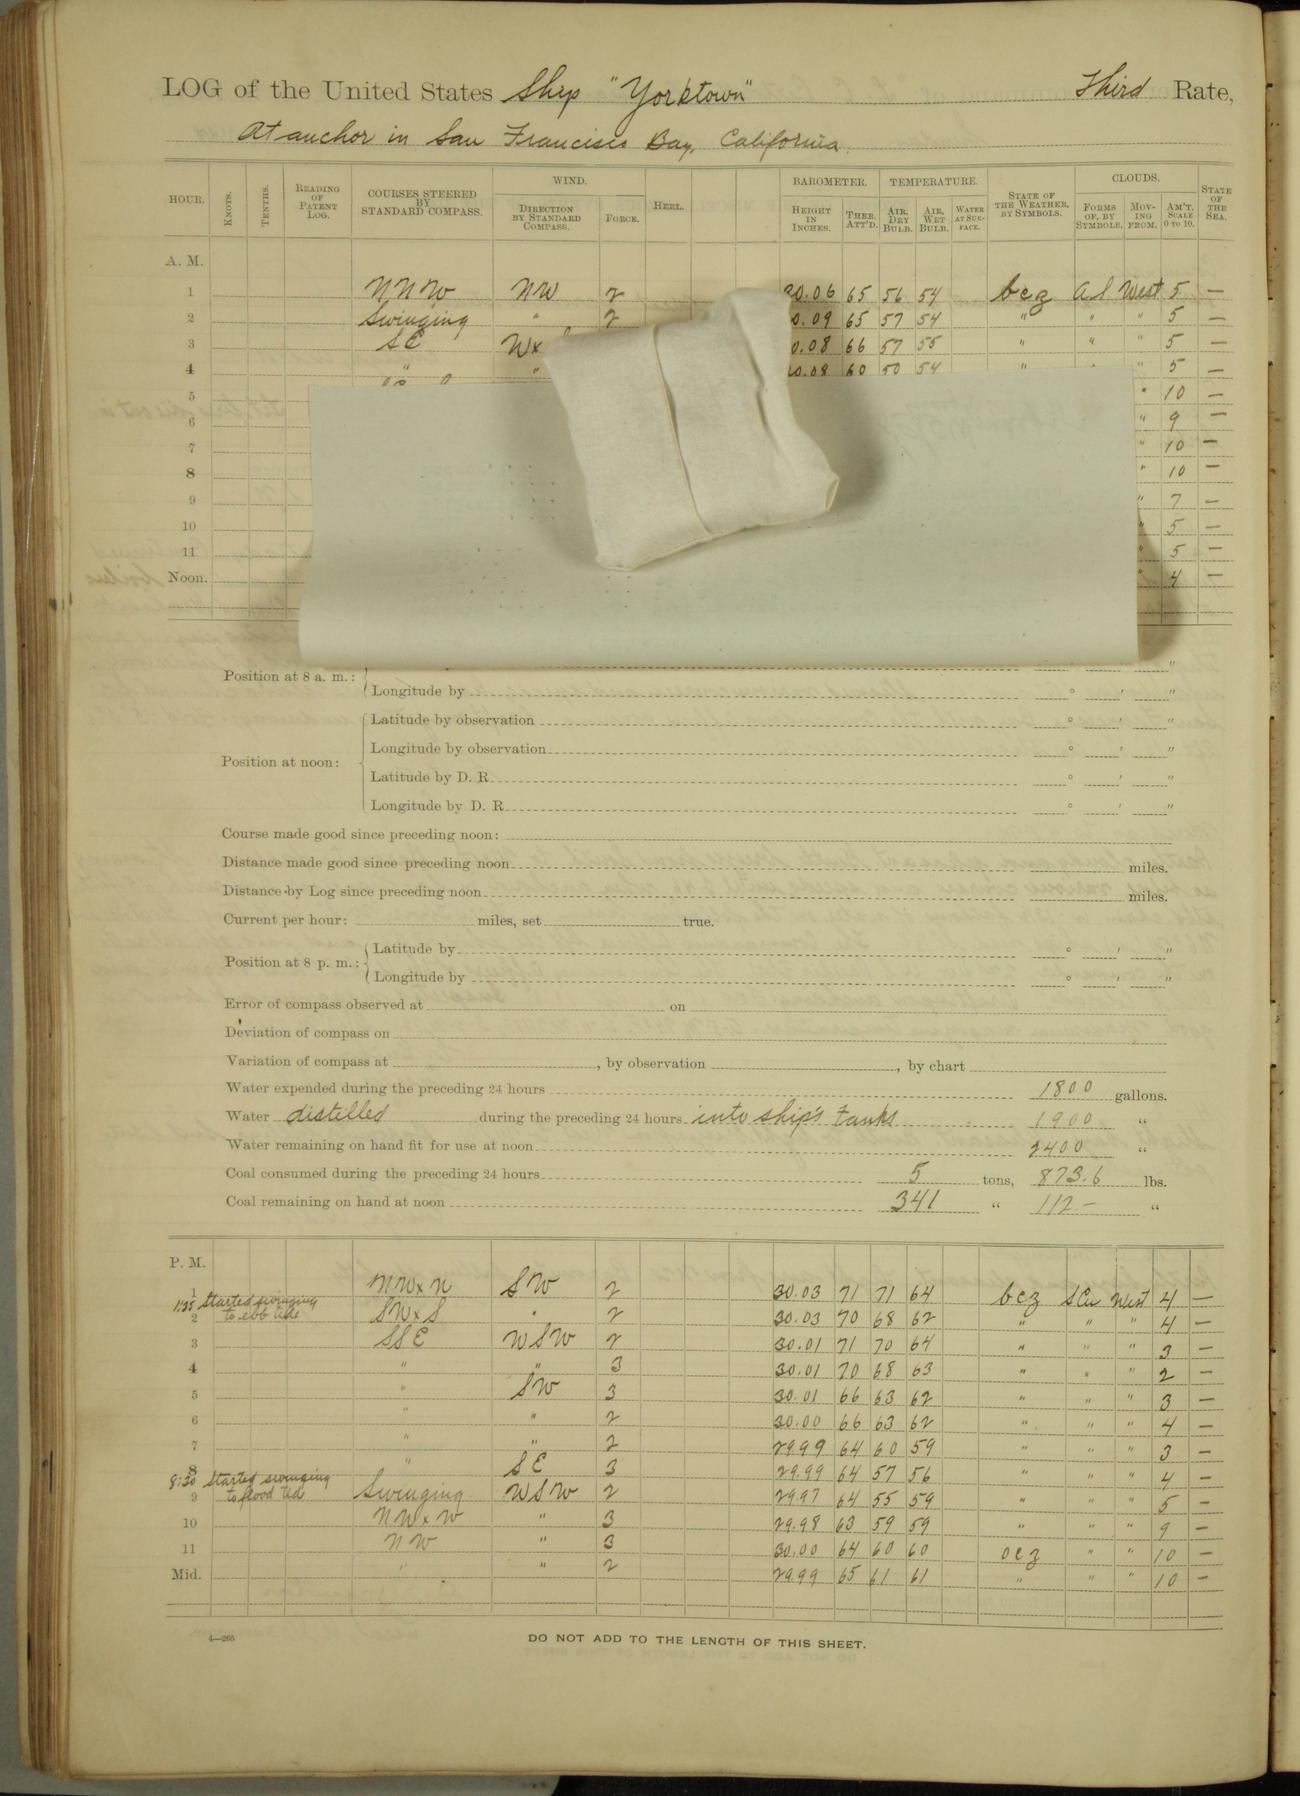 LOG of the United States Ship "Yorktown" Third Rate,
At anchor in San Francisco Bay, California.
HOUR. KNOTS. TENTHS. READING OF PATENT LOG. COURSES STEERED BY STANDARD COMPASS. WIND. DIRECTION BY STANDARD COMPASS. FORCE. HEEL. BAROMETER. HEIGHT IN INCHES. THER. ATT'D. TEMPERATURE. AIR, DRY BULB. AIR, WET BULB. WATER AT SURFACE. STATE OF THE WEATHER, BY SYMBOLS. CLOUDS. FORMS OF, BY SYMBOLS. MOVING FROM. AM'T. SCALE 0 TO 10. STATE OF THE SEA.
A. M.
1 NNW NW 2 30.06 65 56 54 bcz West 5 —
2 Swinging " 2 0.09 65 57 54 " " " 5 —
3 SE Wx 0.08 66 57 55 " " " 5 —
4 " " 54 5 —
5 " 10 —
6 " 9 —
7 " 10 —
8 " 10 —
9 " 7 —
10 " 5 —
11 " 5 —
Noon. " 4 —
Position at 8 a. m.:
Longitude by ° ′ ″
Latitude by observation ° ′ ″
Longitude by observation ° ′ ″
Position at noon:
Latitude by D. R. ° ′ ″
Longitude by D. R. ° ′ ″
Course made good since preceding noon:
Distance made good since preceding noon miles.
Distance by Log since preceding noon miles.
Current per hour: miles, set true.
Position at 8 p. m.: Latitude by ° ′ ″
Longitude by ° ′ ″
Error of compass observed at on
Deviation of compass on
Variation of compass at , by observation , by chart
Water expended during the preceding 24 hours 1800 gallons.
Water distilled during the preceding 24 hours into ship's tanks 1900 "
Water remaining on hand fit for use at noon 2400 "
Coal consumed during the preceding 24 hours 5 tons, 873.6 lbs.
Coal remaining on hand at noon 341 " 112 — "
P. M.
1 NWxN SW 2 30.03 71 71 64 bcz SCu West 4 —
1:35 Started swinging to ebb tide
2 SWxS " 2 30.03 70 68 62 " " " 4 —
3 SSE WSW 2 30.01 71 70 64 " " " 3 —
4 " " 3 30.01 70 68 63 " " " 2 —
5 " SW 3 30.01 66 63 62 " " " 3 —
6 " " 2 30.00 66 63 62 " " " 4 —
7 " " 2 29.99 64 60 59 " " " 3 —
8 " SE 3 29.99 64 57 56 " " " 4 —
8:30 Started swinging to flood tide
9 Swinging WSW 2 29.97 64 55 59 " " " 5 —
10 NWxW " 3 29.98 63 59 59 " " " 9 —
11 NW " 3 30.00 64 60 60 ocz " " 10 —
Mid. " " 2 29.99 65 61 61 " " " 10 —
4—265
DO NOT ADD TO THE LENGTH OF THIS SHEET.